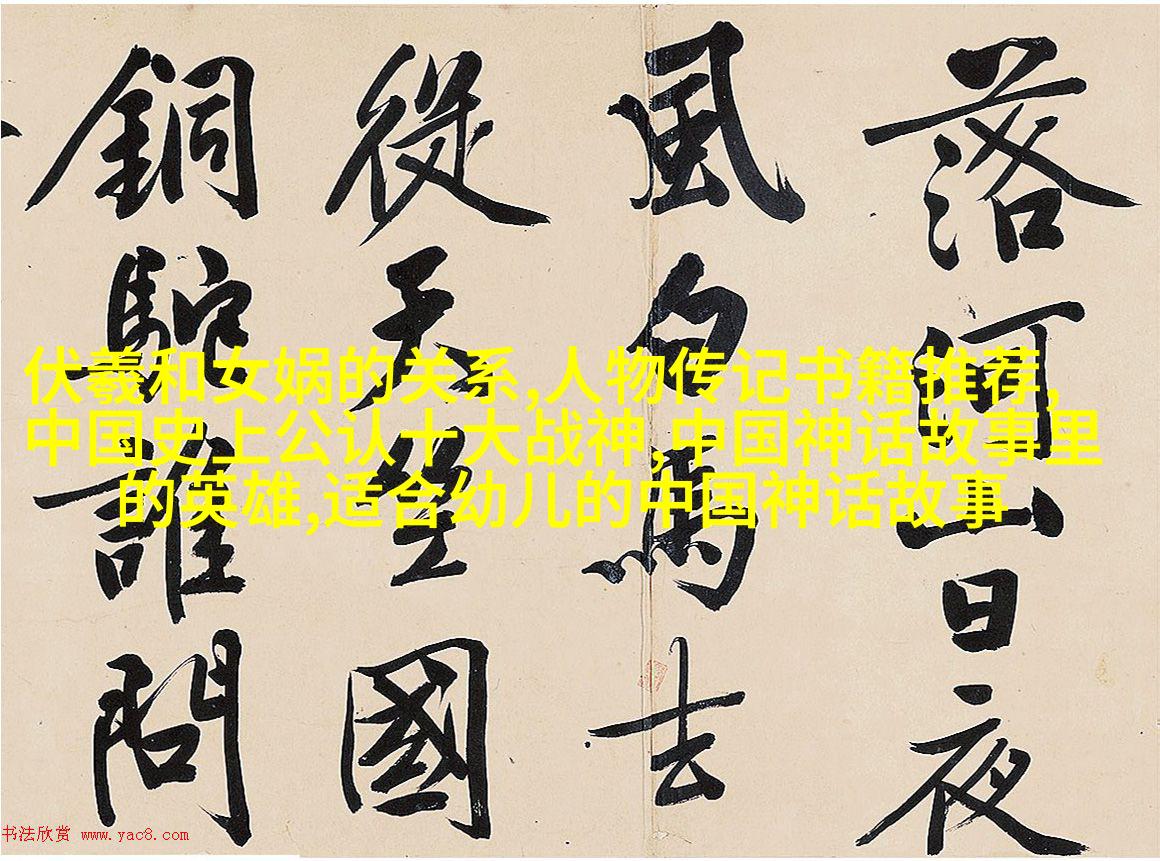 落河山日夜
風白馬去
從天望國
銅駝誰問
伏羲和女娲的关系,人物传记书籍推荐,
中国史上公认十大战神,中国神话故事里
的英雄,适合幼儿的中国神话故事
书法欣赏 www.yac8.com